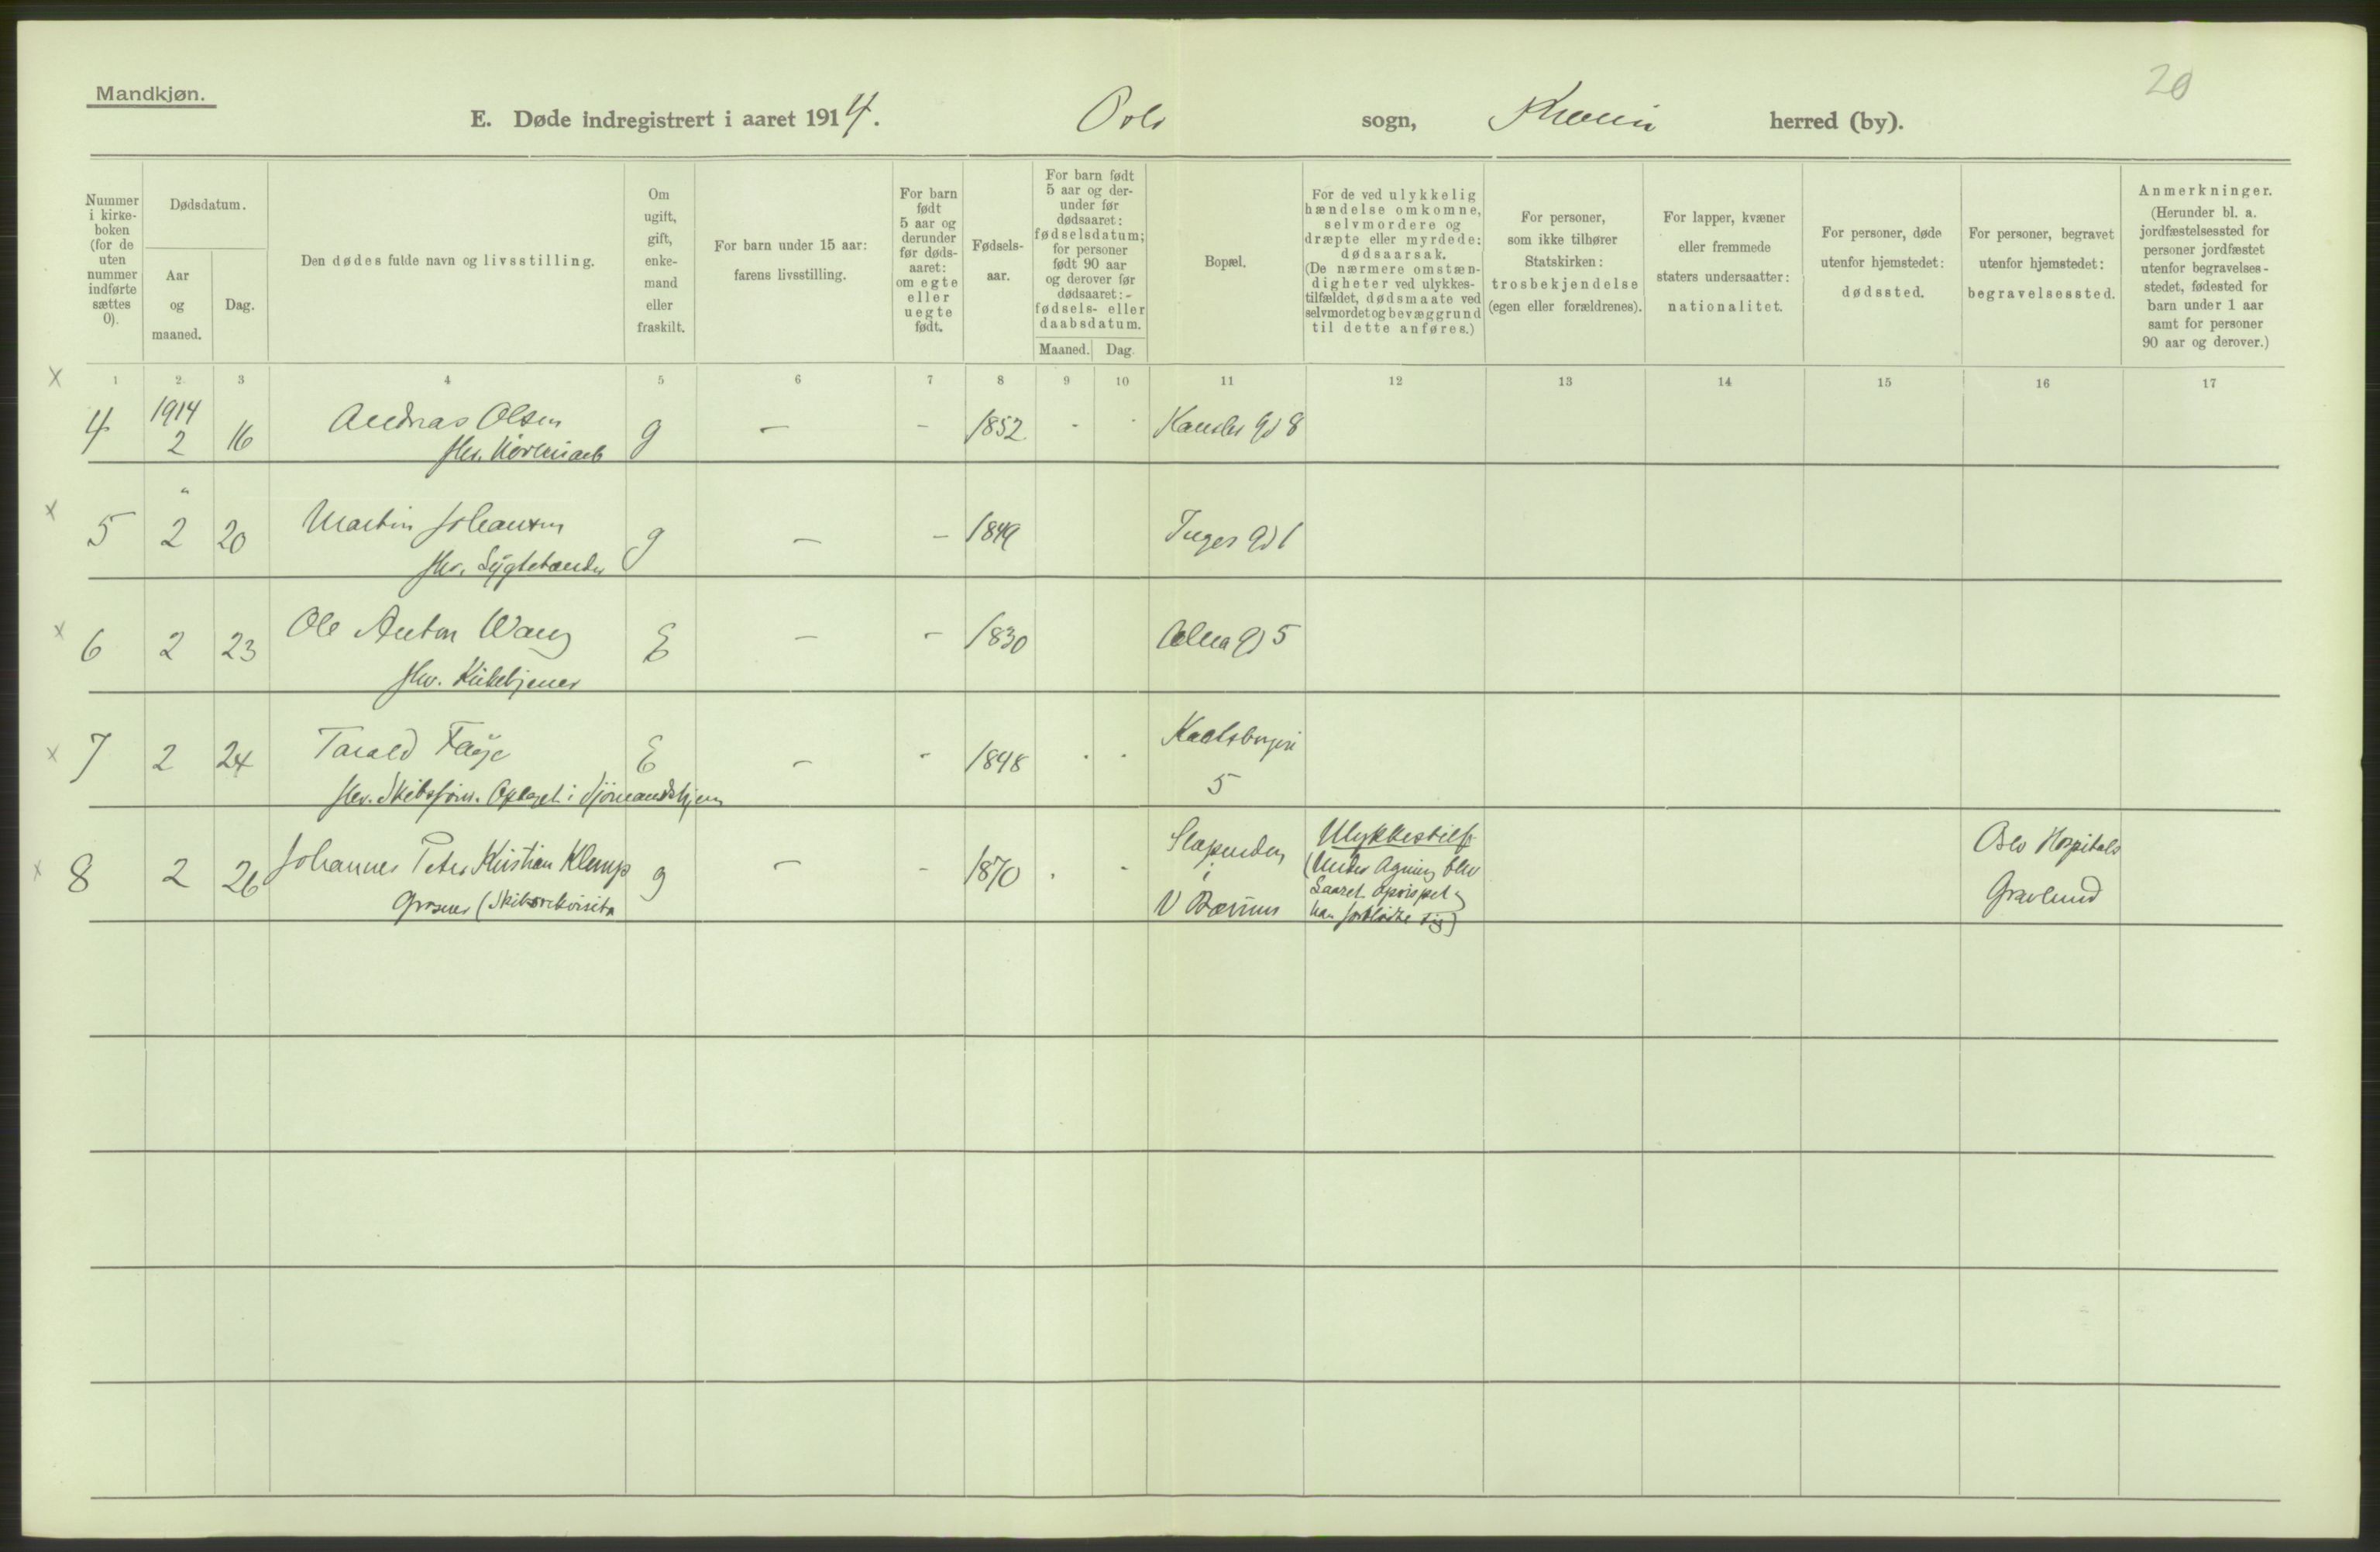 Mandkjøn.
20
E. Døde indregistrert i aaret 1914. Oslo sogn, Kristiania herred (by).
Nummer i kirke- boken (for de uten nummer indførte sættes 0).
Dødsdatum.
Aar og maaned.
Dag.
Den dødes fulde navn og livsstilling.
Om ugift, gift, enke- mand eller fraskilt.
For barn under 15 aar: farens livsstilling.
For barn født 5 aar og derunder før døds- aaret: om egte eller uegte født.
Fødsels- aar.
For barn født 5 aar og der- under før dødsaaret: fødselsdatum; for personer født 90 aar og derover før dødsaaret:- fødsels- eller daabsdatum.
Maaned. Dag.
Bopæl.
For de ved ulykkelig hændelse omkomne, selvmordere og dræpte eller myrdede: dødsaarsak. (De nærmere omstæn- digheter ved ulykkes- tilfældet, dødsmaate ved selvmordet og bevæggrund til dette anføres.)
For personer, som ikke tilhører Statskirken: trosbekjendelse (egen eller forældrenes).
For lapper, kvæner eller fremmede staters undersaatter: nationalitet.
For personer, døde utenfor hjemstedet: dødssted.
For personer, begravet utenfor hjemstedet: begravelsessted.
Anmerkninger. (Herunder bl. a. jordfæstelsessted for personer jordfæstet utenfor begravelses- stedet, fødested for barn under 1 aar samt for personer 90 aar og derover.)
x 1 2 3 4 5 6 7 8 9 10 11 12 13 14 15 16 17
4 1914 2 16 Andreas Olsen g - - 1852 - - Kansler gd 8
x 5 " 2 20 Martin Johansen g - - 1849 Inges gd 1
fhv. Lygtetænder
x 6 2 23 Ole Anton Wang E - - 1830 Alna gd 5
fhv. Kirketjener
x 7 2 24 Tarald E - - 1848 - -
5
fhv. Skibsfører. Optaget i Sjømandshjem
x 8 2 26 Johannes Peter Kristian Klemp g - - 1870 - - Slependen
i
V Bærum
Grosserer (Skibsrekvisita
Ulykkestilf
(Under Agning blev
Laaret
han forblødte sig)
Oslo Hospitals
Gravlund